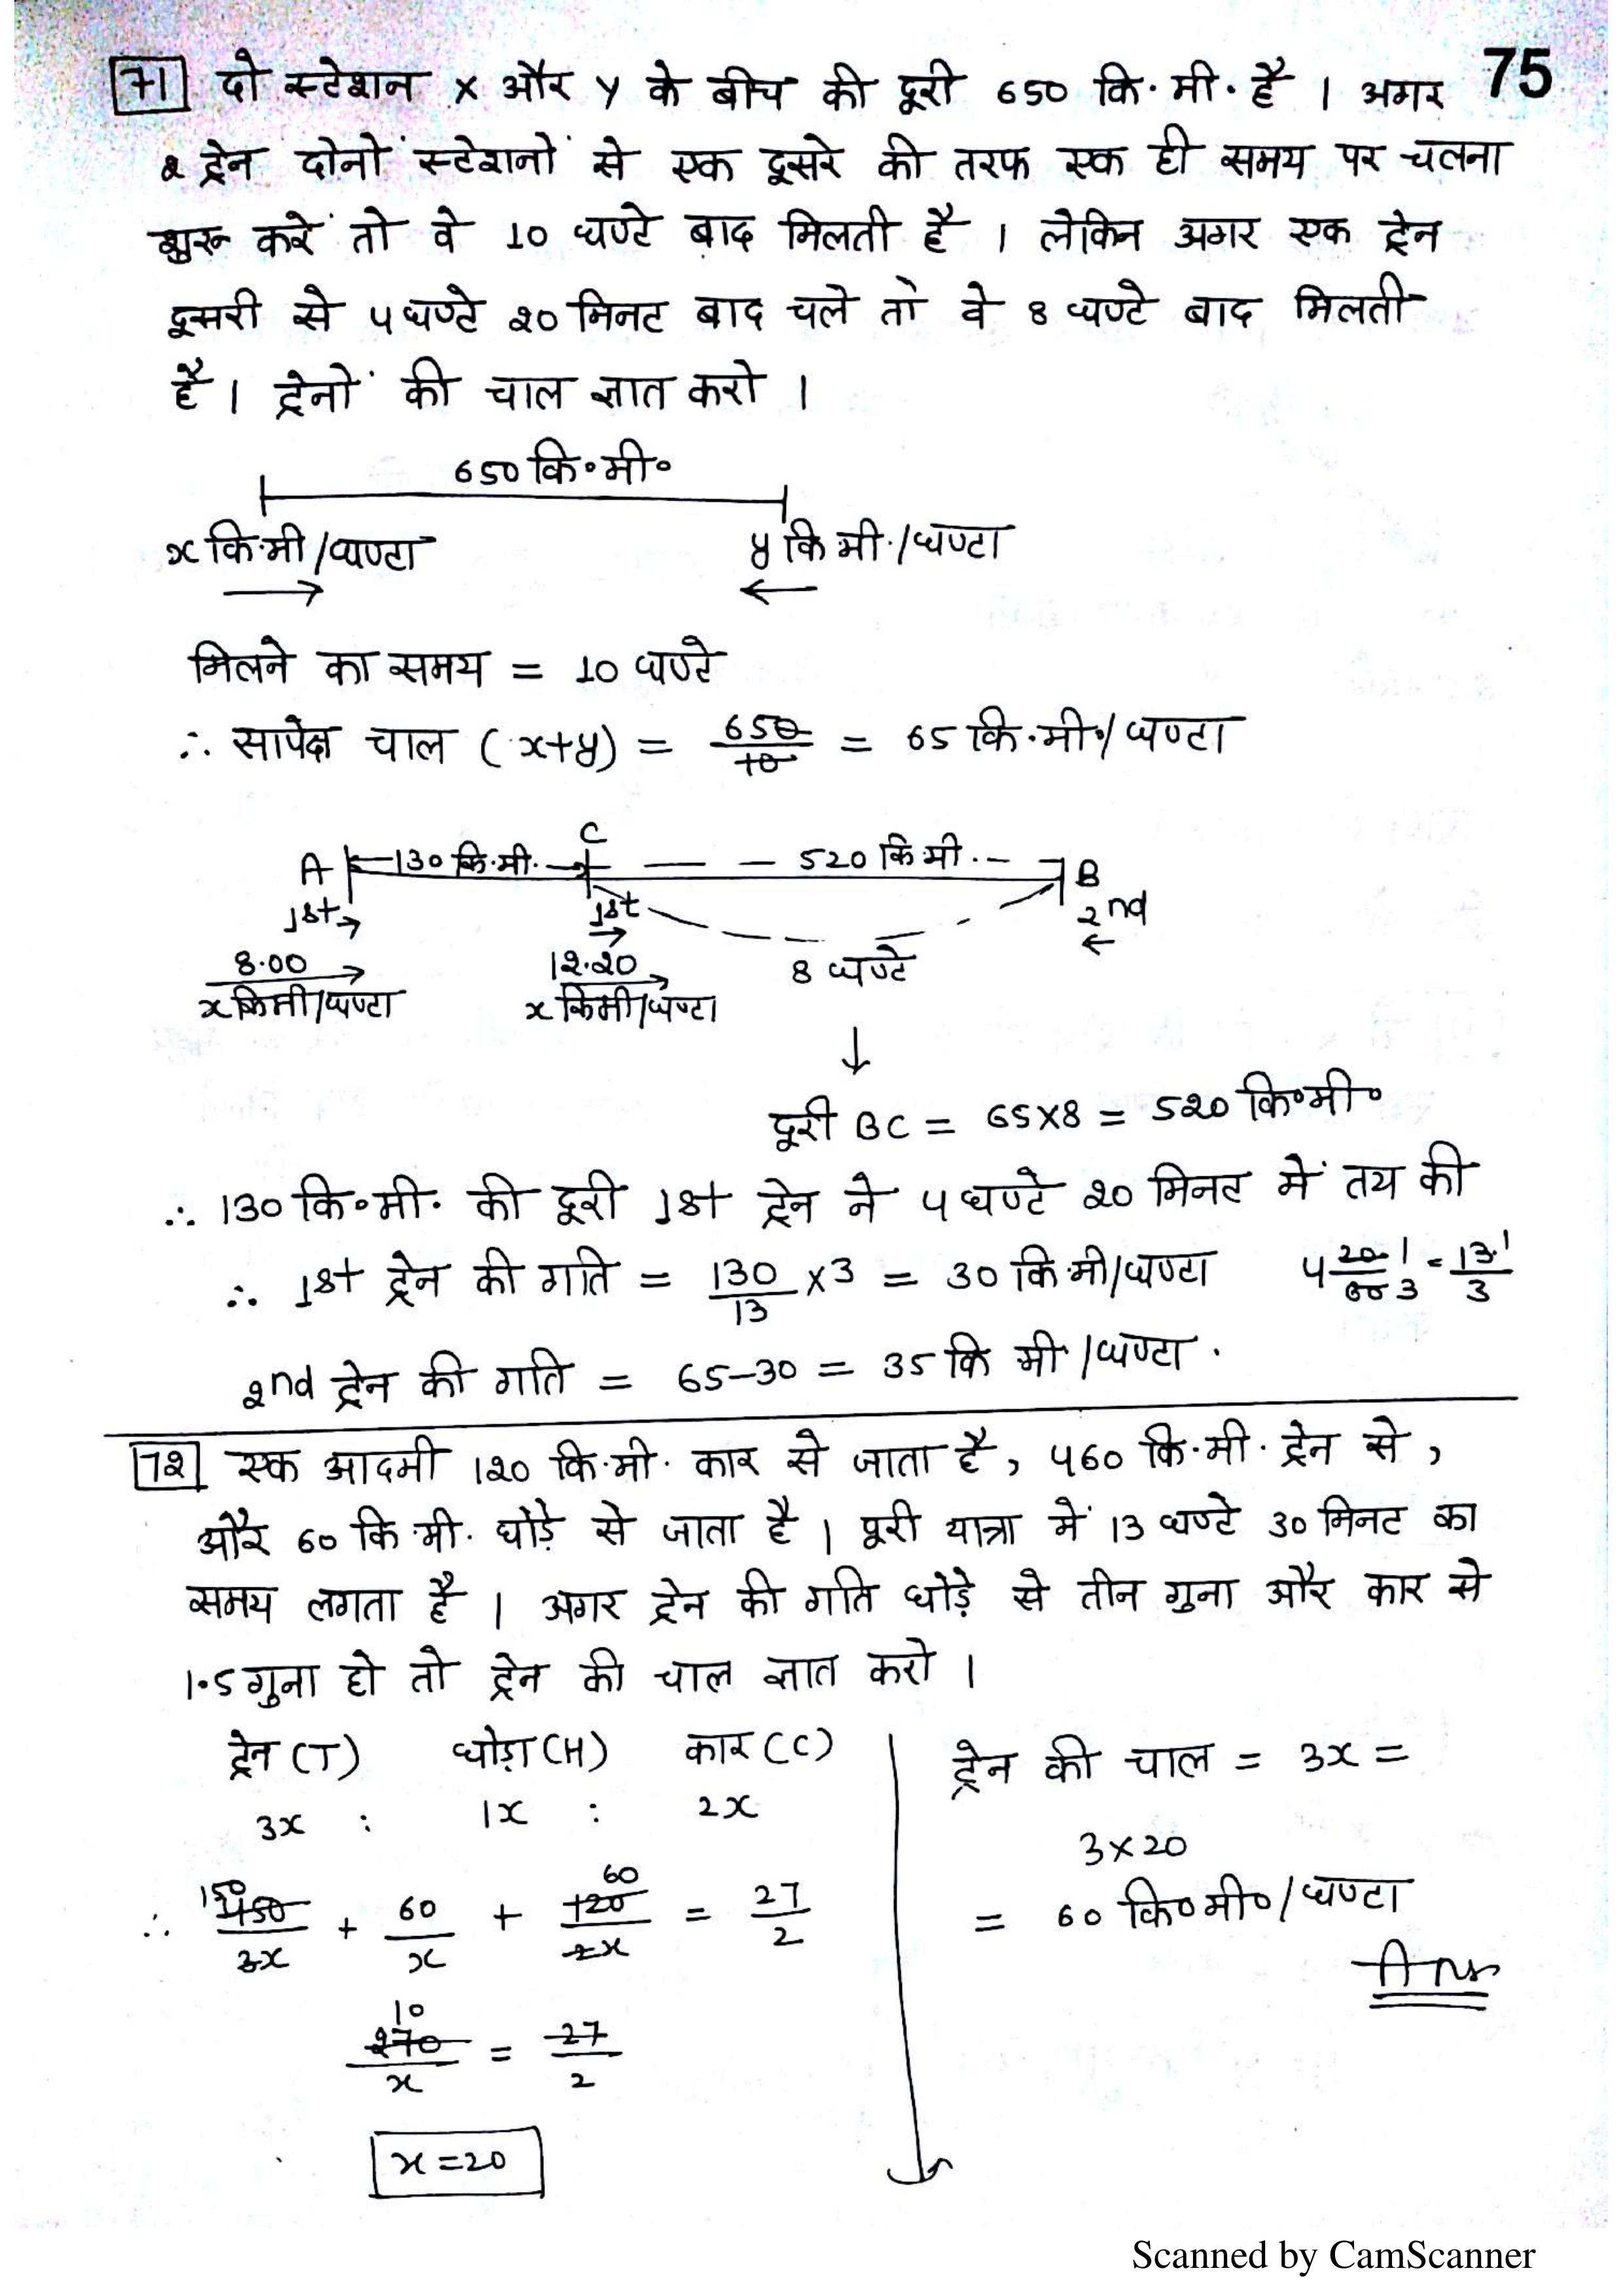 71 दो स्टेशन X और Y के बीच की दूरी 650 कि.मी. है । अगर
75
2 ट्रेन दोनों स्टेशनों से एक दूसरे की तरफ एक ही समय पर चलना
शुरू करें तो वे 10 घण्टे बाद मिलती है । लेकिन अगर एक ट्रेन
दूसरी से 4 घण्टे 20 मिनट बाद चले तो वे 8 घण्टे बाद मिलती
है । ट्रेनों की चाल ज्ञात करो ।
650 कि॰मी॰
x कि.मी/घण्टा y कि मी./घण्टा
→ ←
मिलने का समय = 10 घण्टे
∴ सापेक्ष चाल (x+y) = 650/10 = 65 कि.मी./घण्टा
A 130 कि.मी. C 520 कि मी. B
1st → 1st → 2nd ←
8.00 12.20 8 घण्टे
x किमी/घण्टा x किमी/घण्टा
↓
दूरी BC = 65x8 = 520 कि॰मी॰
∴ 130 कि॰मी. की दूरी 1st ट्रेन ने 4 घण्टे 20 मिनट में तय की
∴ 1st ट्रेन की गति = 130/13 x3 = 30 कि मी/घण्टा 4 20/60 1/3 = 13/3
2nd ट्रेन की गति = 65-30 = 35 कि मी/घण्टा .
72 एक आदमी 120 कि.मी. कार से जाता है, 460 कि.मी. ट्रेन से,
और 60 कि.मी. घोड़े से जाता है । पूरी यात्रा में 13 घण्टे 30 मिनट का
समय लगता है । अगर ट्रेन की गति घोड़े से तीन गुना और कार से
1.5 गुना हो तो ट्रेन की चाल ज्ञात करो ।
ट्रेन (T) घोड़ा (H) कार (C)
3x : 1x : 2x
150 60
∴ 450/3x + 60/x + 120/2x = 27/2
10
270/x = 27/2
x = 20
ट्रेन की चाल = 3x =
3 x 20
= 60 कि॰मी॰/घण्टा
Ans
Scanned by CamScanner